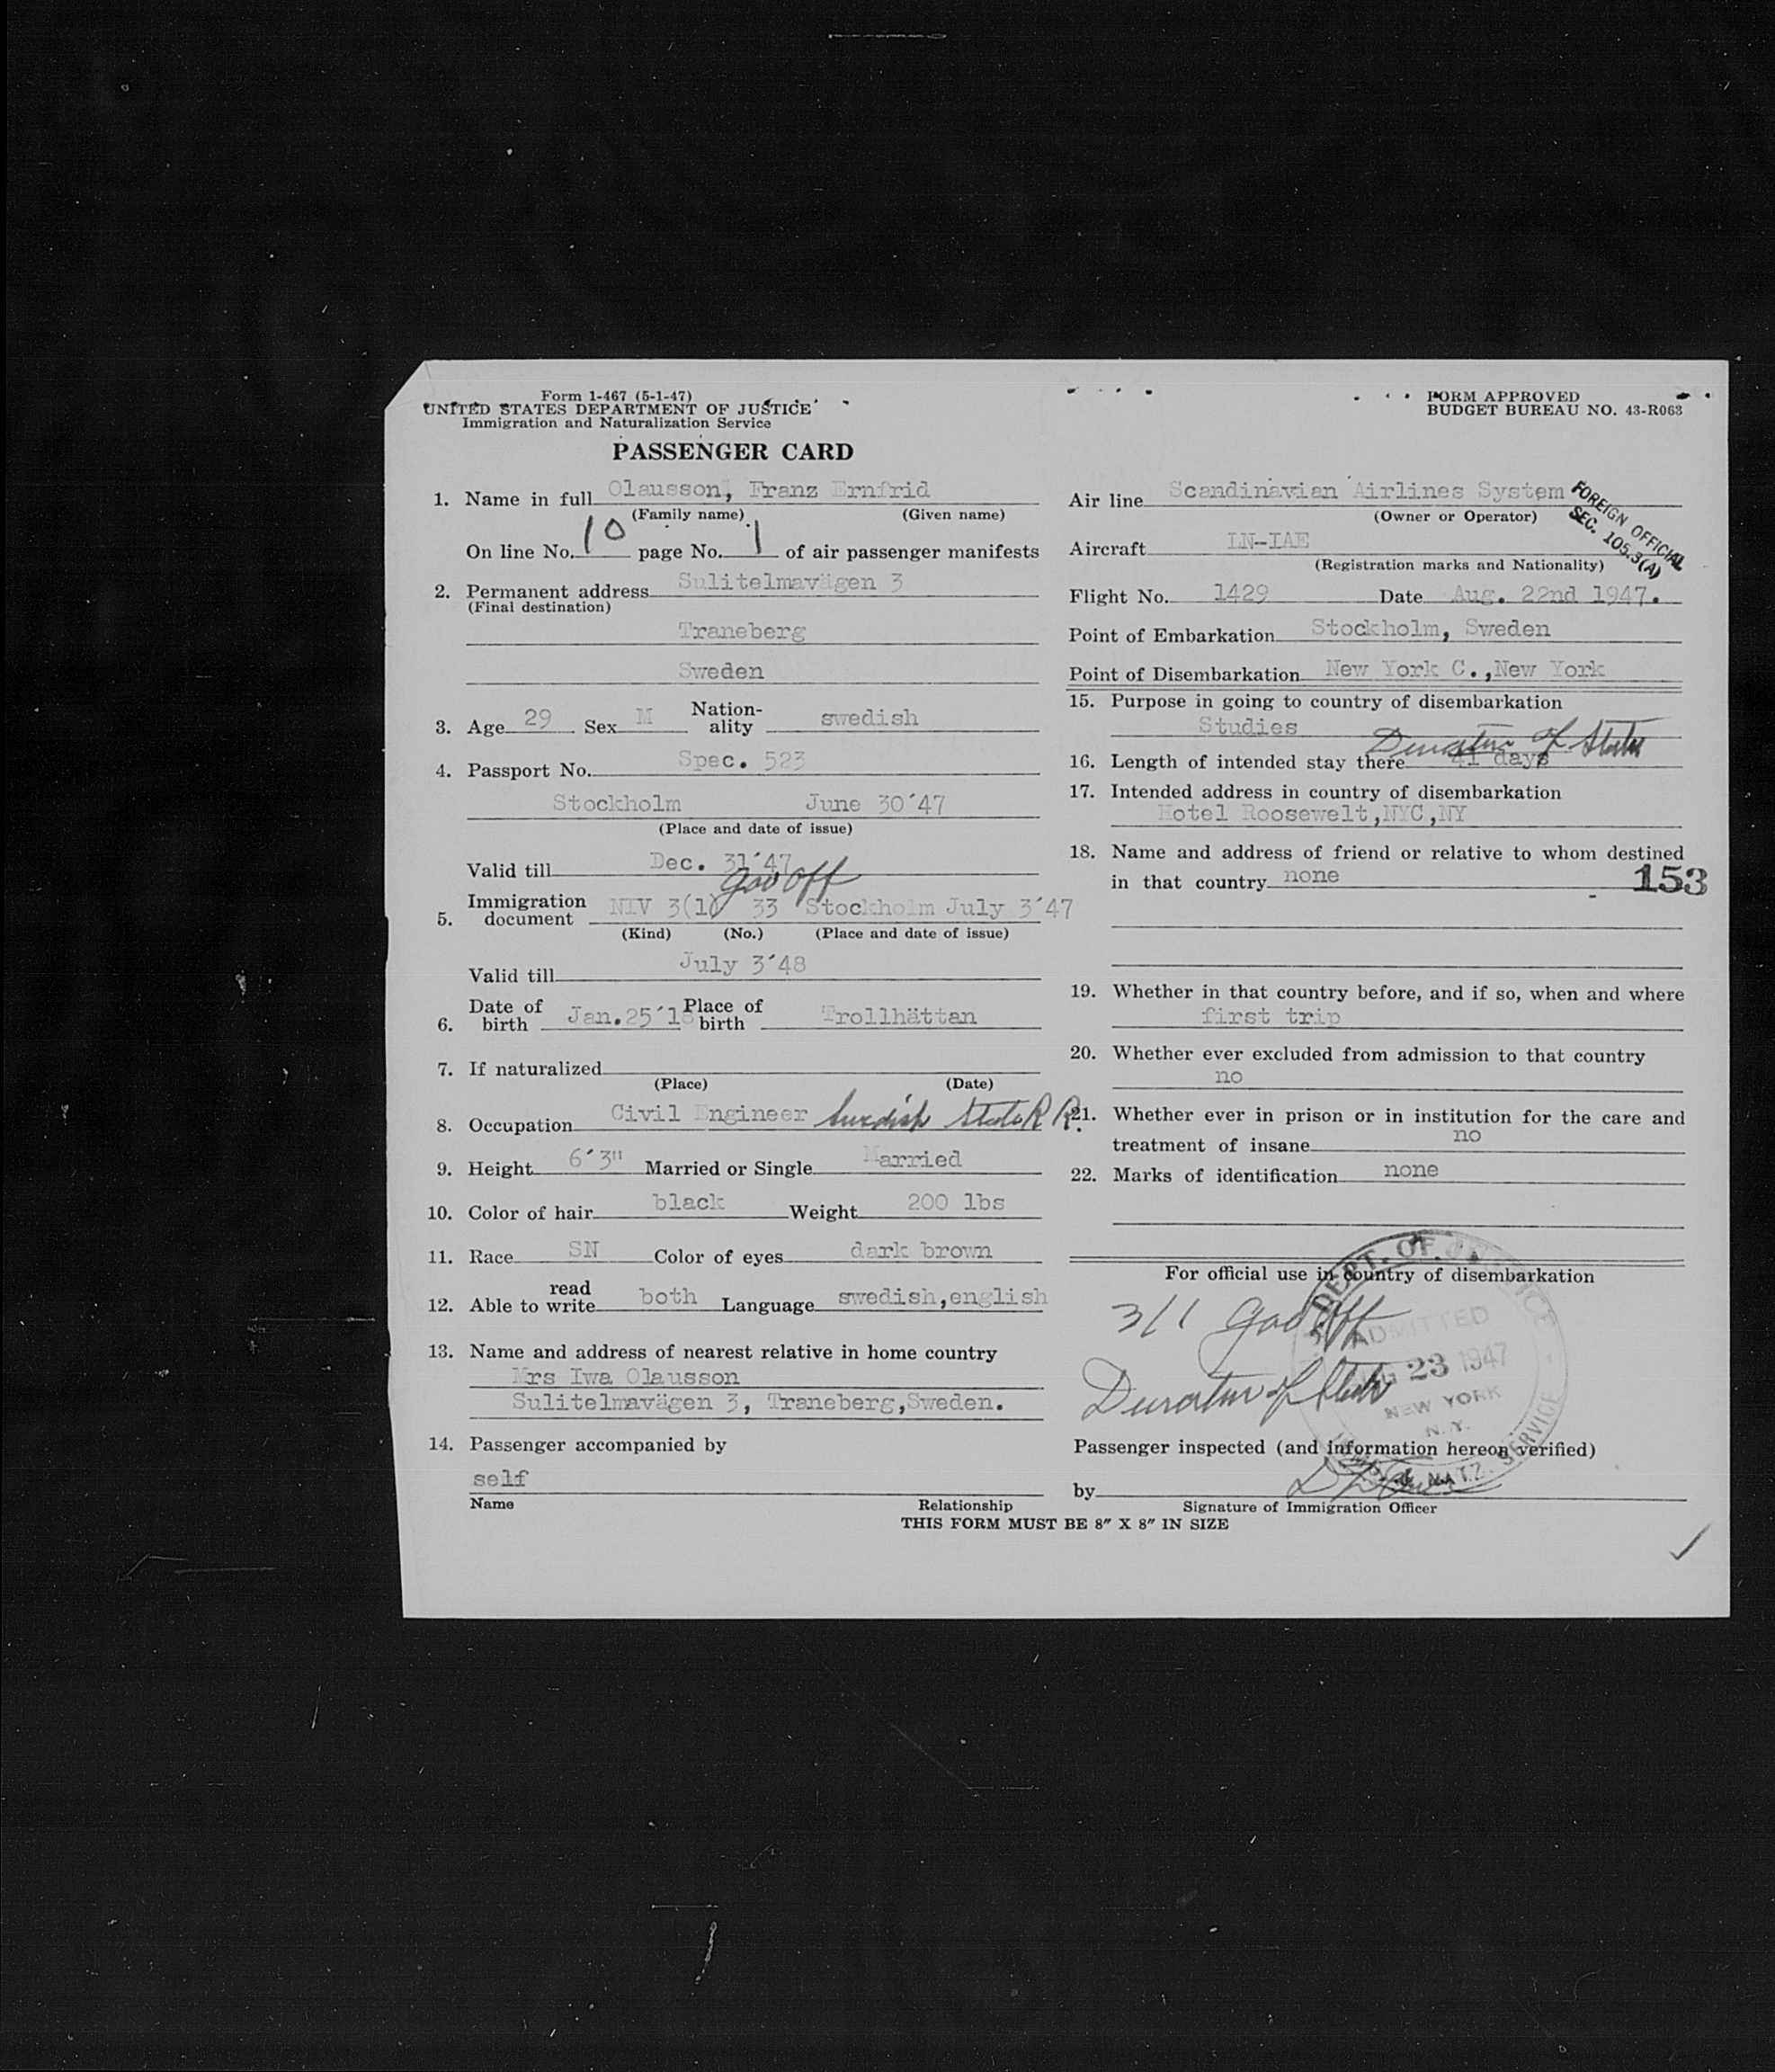 Form 1-467 (5-1-47)
UNITED STATES DEPARTMENT OF JUSTICE
Immigration and Naturalization Service
PASSENGER CARD
1. Name in full Olausson, Franz Ernfrid
(Family name) (Given name)
On line No. 10 page No. 1 of air passenger manifests
2. Permanent address Sulitelmavägen 3
(Final destination)
Traneberg
Sweden
3. Age 29 Sex M Nation-ality swedish
4. Passport No. Spec. 523
Stockholm June 30´47
(Place and date of issue)
Valid till Dec. 31´47
Gov Off
5. Immigration document NIV 3(1) 33 Stockholm July 3´47
(Kind) (No.) (Place and date of issue)
Valid till July 3´48
6. Date of birth Jan.25´18 Place of birth Trollhättan
7. If naturalized
(Place) (Date)
8. Occupation Civil Engineer Swedish State R R.
9. Height 6´3" Married or Single Married
10. Color of hair black Weight 200 lbs
11. Race SN Color of eyes dark brown
12. Able to read write both Language swedish,english
13. Name and address of nearest relative in home country
Mrs Iwa Olausson
Sulitelmavägen 3, Traneberg,Sweden.
14. Passenger accompanied by
self
Name Relationship
FORM APPROVED
BUDGET BUREAU NO. 43-R063
Air line Scandinavian Airlines System
(Owner or Operator)
FOREIGN OFFICIAL
SEC. 105.3(A)
Aircraft LN-IAE
(Registration marks and Nationality)
Flight No. 1429 Date Aug. 22nd 1947.
Point of Embarkation Stockholm, Sweden
Point of Disembarkation New York C.,New York
15. Purpose in going to country of disembarkation
Studies
Duration of Status
16. Length of intended stay there 41 days
17. Intended address in country of disembarkation
Hotel Roosewelt,NYC,NY
18. Name and address of friend or relative to whom destined
in that country none
153
19. Whether in that country before, and if so, when and where
first trip
20. Whether ever excluded from admission to that country
no
21. Whether ever in prison or in institution for the care and
treatment of insane no
22. Marks of identification none
For official use in country of disembarkation
3/1 Gov Off
Duration of Status
DEPT. OF JUSTICE
ADMITTED
AUG 23 1947
NEW YORK
N.Y.
NATZ. SERVICE
Passenger inspected (and information hereon verified)
by
Signature of Immigration Officer
THIS FORM MUST BE 8" X 8" IN SIZE